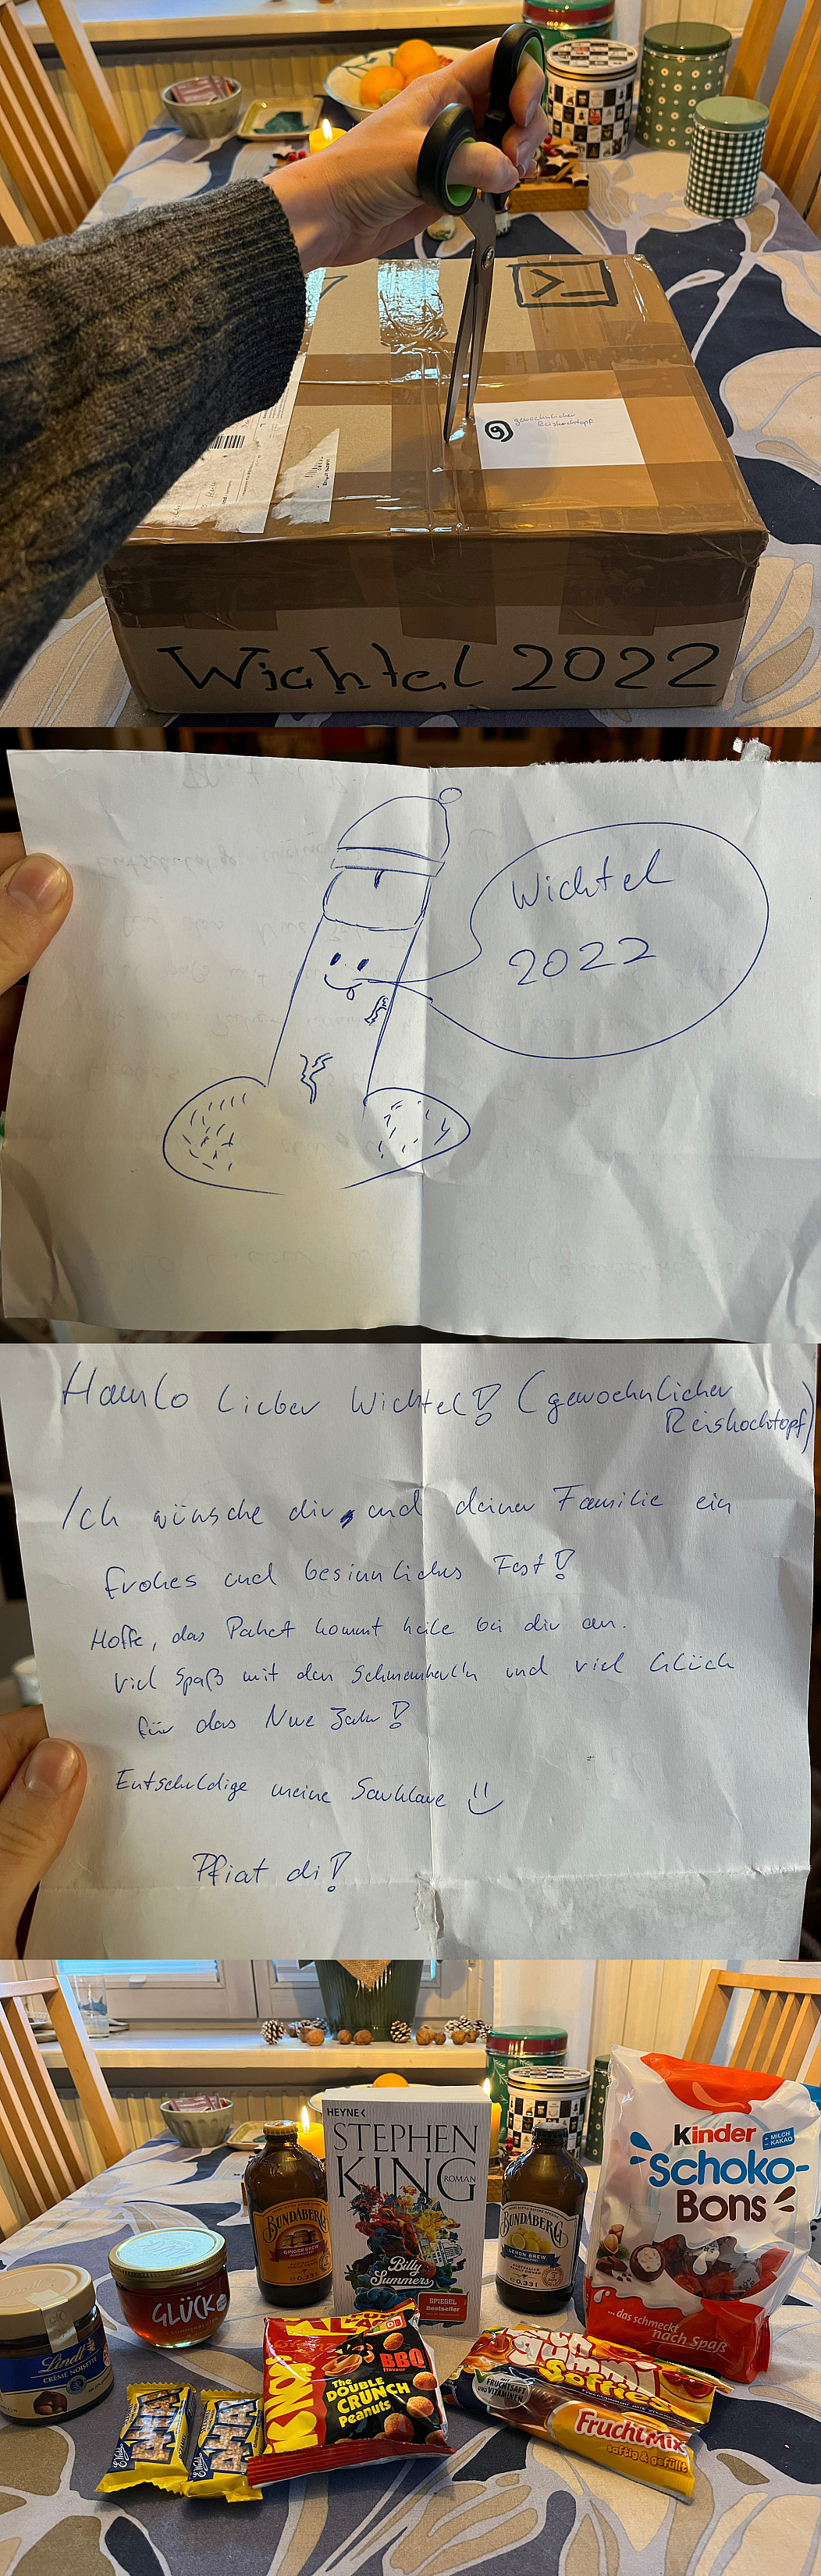 >_
gewoehnlicher
Reiskochtopf
Wichtel 2022
Wichtel
2022
Hamlo lieber Wichtel! (gewoehnlicher
Reiskochtopf)
Ich wünsche dir, und deiner Familie ein
frohes und besinnliches Fest!
Hoffe, das Paket kommt heile bei dir an.
Viel Spaß mit den Schmankerl'n und viel Glück
für das Nue Jahr!
Entschuldige meine Sauklaue
Pfiat di!
HEYNE<
STEPHEN
KING
ROMAN
Billy
Summers
SPIEGEL
Bestseller
BUNDABERG
GINGER BREW
0,33 l
BUNDABERG
LEMON BREW
0,33 l
Kinder
+MILCH
-KAKAO
Schoko-
Bons
...das schmeckt
nach Spaß
GLÜCK
Lindt
CRÈME NOISETTE
BBQ
The
DOUBLE
CRUNCH
Peanuts
gummi
Softies
FRUCHTSAFT
UND VITAMINEN
FruchtMix
saftig & gefüllt